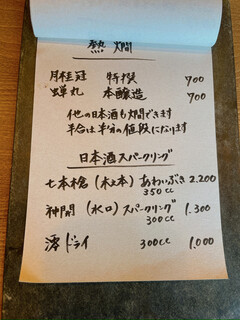 熱燗
月桂冠 特撰 700
蝉丸 本醸造 700
他の日本酒も燗できます
半合は半分の値段になります
日本酒スパークリング
七本槍 (木之本) あわいぶき 2.200
350cc
神開 (水口) スパークリング 1.300
300cc
澪ドライ 300cc 1.000